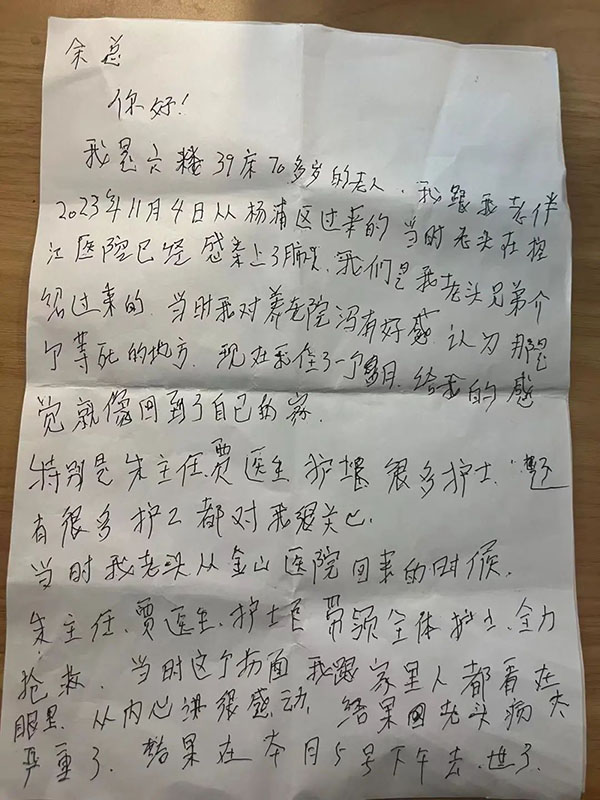 余总
你好！
我是六楼39床70多岁的老人，我跟我老伴
2023年11月4日从杨浦区过来的 当时老头在控
江医院已经感染上了肺炎，我们是我老头兄弟介
绍过来的，当时我对养老院没有好感 认为那是
个等死的地方，现在我住了一个多月，给我的感
觉就像回到了自己的家，
特别是朱主任，贾医生 护士 很多护士，还
有很多护工都对我很关心，
当时我老头从金山医院回来的时候，
朱主任、贾医生，护士长 带领全体护士，全力
抢救，当时这个场面 我跟家里人都看在
眼里，从内心讲很感动，结果因老头病太
严重了，结果在本月5号下午去世了，